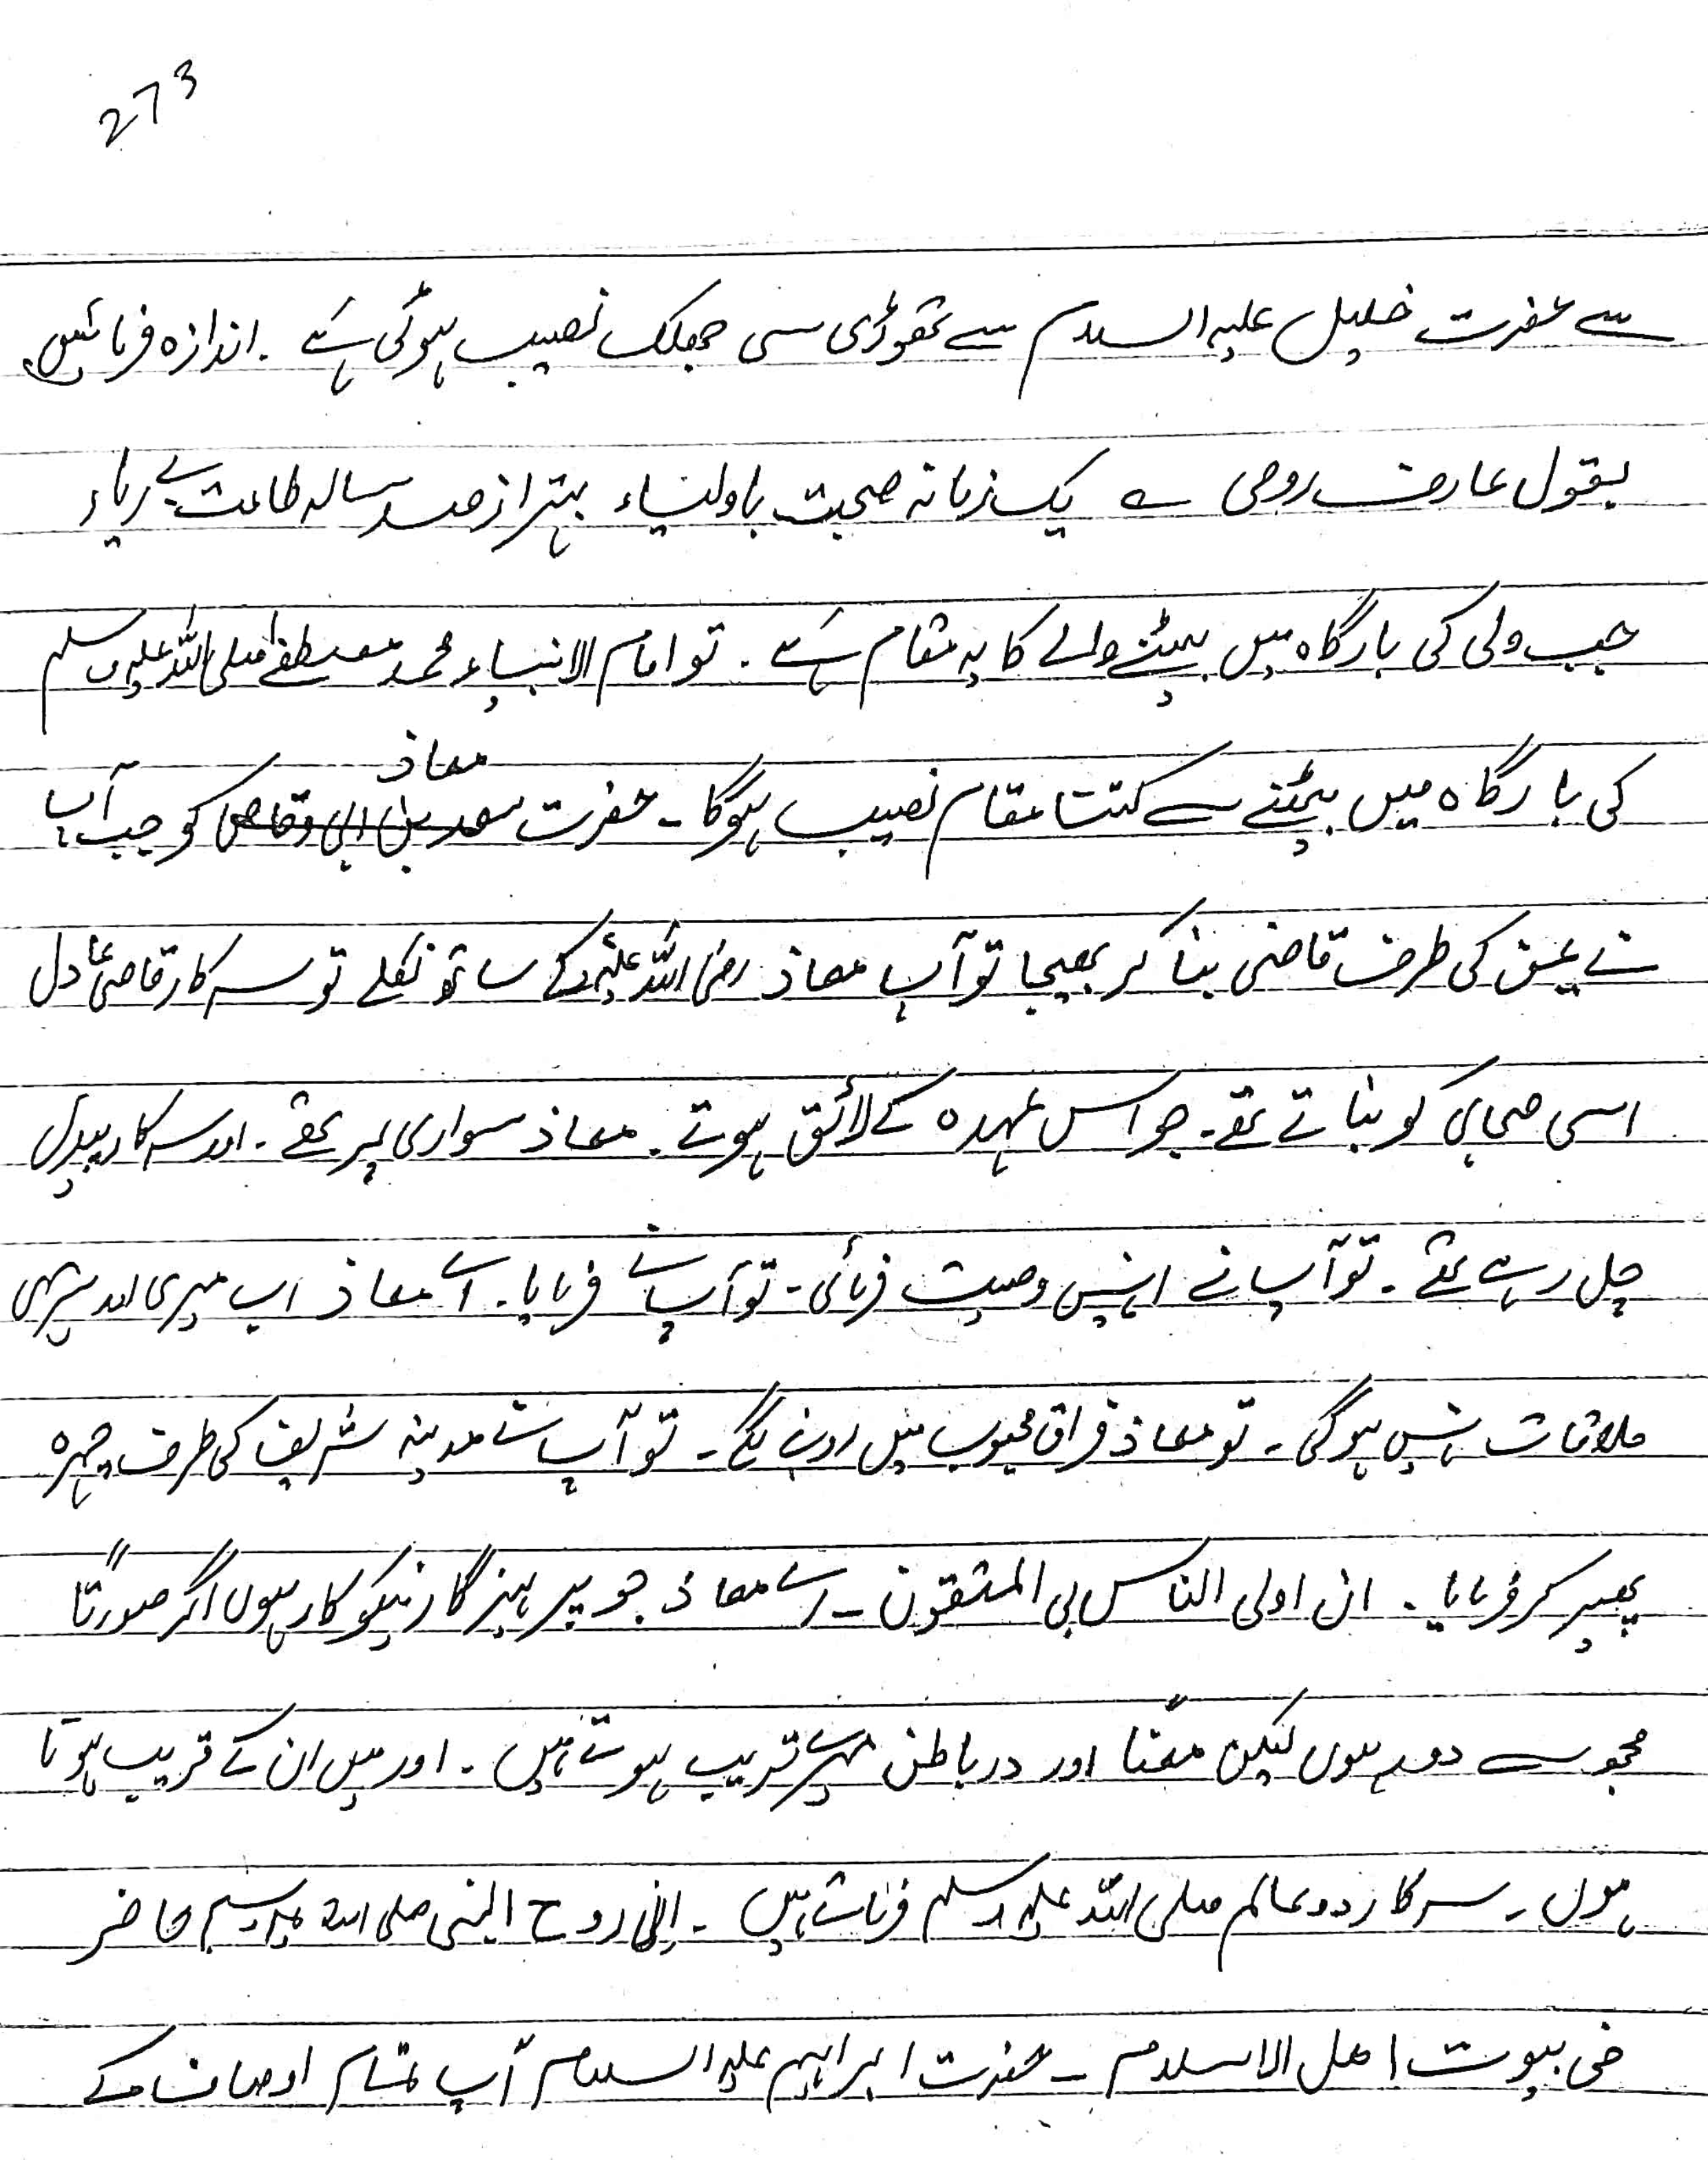 273
سے حضرت خلیل علیہ السلام سے تھوڑی سی جھلک نصیب ہوئی ہے ۔ اندازہ فرمائیں
بقول عارف رومی ؎ یک زمانہ صحبت با ولیاء بہتر از صد سالہ طاعت بے ریاء
جب ولی کی بارگاہ میں بیٹنے والے کا یہ مقام ہے ۔ تو امام الانبیاء محمد مصطفےٰ صلی اللہ علیہ وسلم
معاذ
کی بارگاہ میں بیٹنے سے کتنا مقام نصیب ہوگا ۔ حضرت سعد بن ابی وقاص کو جب آپ
نے یمن کی طرف قاضی بنا کر بھیجا تو آپ معاذ رضی اللہ علیہ کے ساتھ نکلے تو سرکار قاضی عادل
اسی صحابی کو بناتے تھے ۔ جو اس عہدہ کے لائق ہوتے ۔ معاذ سواری پر تھے ۔ اور سرکار پیدل
چل رہے تھے ۔ تو آپ نے انہیں وصیت فرمائی ۔ تو آپ نے فرمایا ۔ اے معاذ اب میری اور تیری
ملاقات نہیں ہوگی ۔ تو معاذ فراق محبوب میں رونے لگے ۔ تو آپ نے مدینہ شریف کی طرف چہرہ
پھیر کر فرمایا ۔ ان اولی الناس بی المتقون ۔ اے معاذ جو پرہیزگار نیکوکار ہوں اگر صورتاً
مجھ سے دور ہوں لیکن معنا اور درباطن میرے قریب ہوتے ہیں ۔ اور میں ان کے قریب ہوتا
ہوں ۔ سرکار دوعالم صلی اللہ علیہ وسلم فرماتے ہیں ۔ روح النبی صلی اللہ علیہ وسلم حاضر
فی بیوت اھل الاسلام ۔ حضرت ابراہیم علیہ السلام آپ تمام اوصاف کے